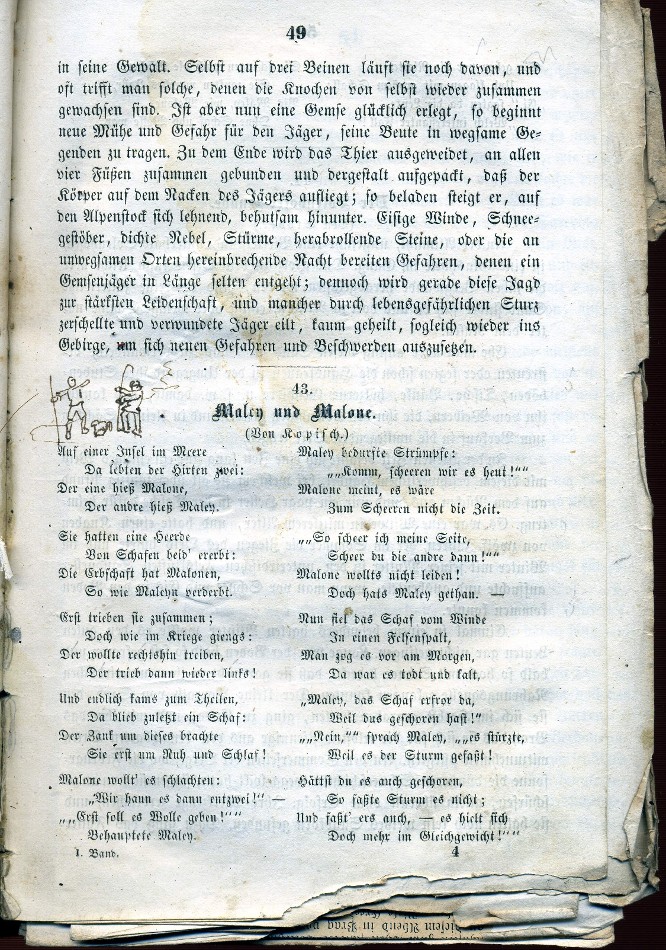 49
in seine Gewalt. Selbst auf drei Beinen läuft sie noch davon, und
oft trifft man solche, denen die Knochen von selbst wieder zusammen
gewachsen sind. Ist aber nun eine Gemse glücklich erlegt, so beginnt
neue Mühe und Gefahr für den Jäger, seine Beute in wegsame Ge-
genden zu tragen. Zu dem Ende wird das Thier ausgeweidet, an allen
vier Füßen zusammen gebunden und dergestalt aufgepackt, daß der
Körper auf dem Nacken des Jägers aufliegt; so beladen steigt er, auf
den Alpenstock sich lehnend, behutsam hinunter. Eisige Winde, Schnee-
gestöber, dichte Nebel, Stürme, herabrollende Steine, oder die an
unwegsamen Orten hereinbrechende Nacht bereiten Gefahren, denen ein
Gemsenjäger in Länge selten entgeht; dennoch wird gerade diese Jagd
zur stärksten Leidenschaft, und mancher durch lebensgefährlichen Sturz
zerschellte und verwundete Jäger eilt, kaum geheilt, sogleich wieder ins
Gebirge, um sich neuen Gefahren und Beschwerden auszusetzen.
43.
Maley und Malone.
(Von Kopisch.)
Auf einer Insel im Meere
Da lebten der Hirten zwei:
Der eine hieß Malone,
Der andre hieß Maley.
Sie hatten eine Heerde
Von Schafen beid' ererbt:
Die Erbschaft hat Malonen,
So wie Maleyn verderbt.
Erst trieben sie zusammen;
Doch wie im Kriege giengs:
Der wollte rechtshin treiben,
Der trieb dann wieder links!
Und endlich kams zum Theilen,
Da blieb zuletzt ein Schaf:
Der Zank um dieses brachte
Sie erst um Ruh und Schlaf!
Malone wollt' es schlachten:
„Wir haun es dann entzwei!“ —
„„Erst soll es Wolle geben!““
Behauptete Maley.
Maley bedurfte Strümpfe:
„„Komm, scheeren wir es heut!““
Malone meint, es wäre
Zum Scheeren nicht die Zeit.
„„So scheer ich meine Seite,
Scheer du die andre dann!““
Malone wollts nicht leiden!
Doch hats Maley gethan. —
Nun fiel das Schaf vom Winde
In einen Felsenspalt,
Man zog es vor am Morgen,
Da war es todt und kalt,
„Maley, das Schaf erfror da,
Weil dus geschoren hast!“
„„Nein,““ sprach Maley, „„es stürzte,
Weil es der Sturm gefaßt!
Hättst du es auch geschoren,
So faßte Sturm es nicht;
Und faßt' ers auch, — es hielt sich
Doch mehr im Gleichgewicht!““
1. Band.
4